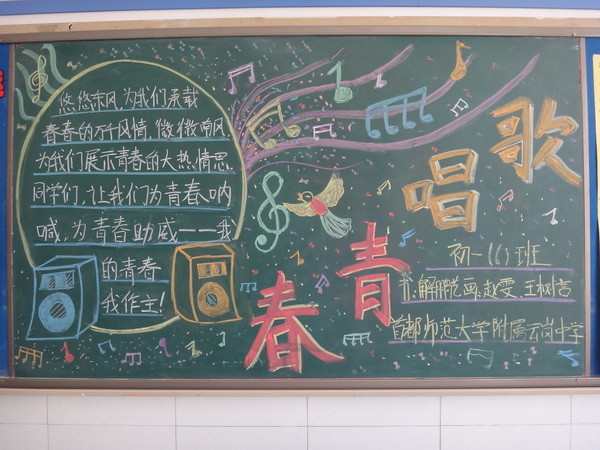 悠悠东风,为我们承载
青春的万千风情,微微南风,
为我们展示青春的大热情思.
同学们,让我们为青春呐
喊,为青春助威——我
的青春
我作主!
歌
唱
青
春
初一(1)班
画:赵雯,王树言
首都师范大学附属云岗中学